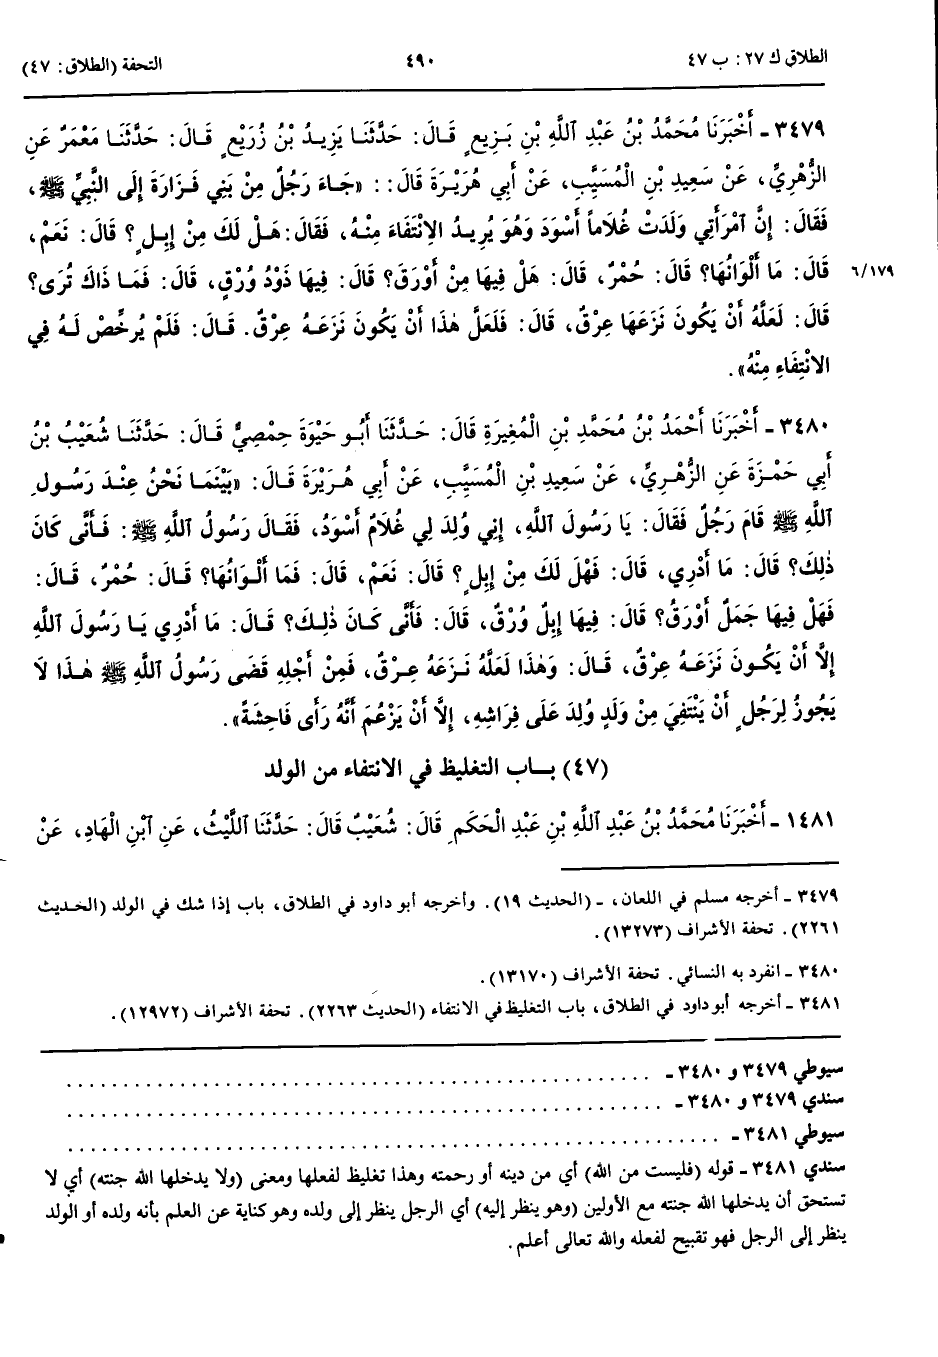 الطلاق ك ٢٧: ب ٤٧
٤٩٠
التحفة (الطلاق: ٤٧)
٣٤٧٩ ـ أَخْبَرَنَا مُحَمَّدُ بْنُ عَبْدِ اللَّهِ بْنِ بَزِيعٍ قَالَ: حَدَّثَنَا يَزِيدُ بْنُ زُرَيْعٍ قَالَ: حَدَّثَنَا مَعْمَرٌ عَنِ
الزُّهْرِيِّ، عَنْ سَعِيدِ بْنِ الْمُسَيَّبِ، عَنْ أَبِي هُرَيْرَةَ قَالَ: : «جَاءَ رَجُلٌ مِنْ بَنِي فَزَارَةَ إِلَى النَّبِيِّ ﷺ،
فَقَالَ: إِنَّ ٱمْرَأَتِي وَلَدَتْ غُلَاماً أَسْوَدَ وَهُوَ يُرِيدُ الِانْتِفَاءَ مِنْهُ، فَقَالَ: هَلْ لَكَ مِنْ إِبِلٍ؟ قَالَ: نَعَمْ،
قَالَ: مَا أَلْوَانُهَا؟ قَالَ: حُمْرٌ، قَالَ: هَلْ فِيهَا مِنْ أَوْرَقَ؟ قَالَ: فِيهَا ذَوْدُ وُرْقٍ، قَالَ: فَمَا ذَاكَ تُرَى؟
٦/١٧٩
قَالَ: لَعَلَّهُ أَنْ يَكُونَ نَزَعَهَا عِرْقٌ، قَالَ: فَلَعَلَّ هٰذَا أَنْ يَكُونَ نَزَعَهُ عِرْقٌ. قَالَ: فَلَمْ يُرَخِّصْ لَهُ فِي
الِانْتِفَاءِ مِنْهُ».
٣٤٨٠ ـ أَخْبَرَنَا أَحْمَدُ بْنُ مُحَمَّدِ بْنِ الْمُغِيرَةِ قَالَ: حَدَّثَنَا أَبُو حَيْوَةَ حِمْصِيٌّ قَالَ: حَدَّثَنَا شُعَيْبُ بْنُ
أَبِي حَمْزَةَ عَنِ الزُّهْرِيِّ، عَنْ سَعِيدِ بْنِ الْمُسَيَّبِ، عَنْ أَبِي هُرَيْرَةَ قَالَ: «بَيْنَمَا نَحْنُ عِنْدَ رَسُولِ
اللَّهِ ﷺ قَامَ رَجُلٌ فَقَالَ: يَا رَسُولَ اللَّهِ، إِنِي وُلِدَ لِي غُلَامٌ أَسْوَدُ، فَقَالَ رَسُولُ اللَّهِ ﷺ: فَأَنَّى كَانَ
ذٰلِكَ؟ قَالَ: مَا أَدْرِي، قَالَ: فَهَلْ لَكَ مِنْ إِبِلٍ؟ قَالَ: نَعَمْ، قَالَ: فَمَا أَلْوَانُهَا؟ قَالَ: حُمْرٌ، قَالَ:
فَهَلْ فِيهَا جَمَلٌ أَوْرَقُ؟ قَالَ: فِيهَا إِبِلٌ وُرْقٌ، قَالَ: فَأَنَّى كَانَ ذٰلِكَ؟ قَالَ: مَا أَدْرِي يَا رَسُولَ اللَّهِ
إِلَّا أَنْ يَكُونَ نَزَعَهُ عِرْقٌ، قَالَ: وَهٰذَا لَعَلَّهُ نَزَعَهُ عِرْقٌ، فَمِنْ أَجْلِهِ قَضَى رَسُولُ اللَّهِ ﷺ هٰذَا لَا
يَجُوزُ لِرَجُلٍ أَنْ يَنْتَفِيَ مِنْ وَلَدٍ وُلِدَ عَلَى فِرَاشِهِ، إِلَّا أَنْ يَزْعُمَ أَنَّهُ رَأَى فَاحِشَةً».
(٤٧) باب التغليظ في الانتفاء من الولد
١٤٨١ ـ أَخْبَرَنَا مُحَمَّدُ بْنُ عَبْدِ اللَّهِ بْنِ عَبْدِ الْحَكَمِ قَالَ: شُعَيْبٌ قَالَ: حَدَّثَنَا اللَّيْثُ، عَنِ ٱبْنِ الْهَادِ، عَنْ
٣٤٧٩ ـ أخرجه مسلم في اللعان، ـ (الحديث ١٩). وأخرجه أبو داود في الطلاق، باب إذا شك في الولد (الحديث
٢٢٦١). تحفة الأشراف (١٣٢٧٣).
٣٤٨٠ ـ انفرد به النسائي. تحفة الأشراف (١٣١٧٠).
٣٤٨١ ـ أخرجه أبو داود في الطلاق، باب التغليظ في الانتفاء (الحديث ٢٢٦٣). تحفة الأشراف (١٢٩٧٢).
سيوطي ٣٤٧٩ و ٣٤٨٠ ـ ........................................
سندي ٣٤٧٩ و ٣٤٨٠ ـ ........................................
سيوطي ٣٤٨١ ـ ........................................
سندي ٣٤٨١ ـ قوله (فليست من الله) أي من دينه أو رحمته وهذا تغليظ لفعلها ومعنى (ولا يدخلها الله جنته) أي لا
تستحق أن يدخلها الله جنته مع الأولين (وهو ينظر إليه) أي الرجل ينظر إلى ولده وهو كناية عن العلم بأنه ولده أو الولد
ينظر إلى الرجل فهو تقبيح لفعله والله تعالى أعلم.